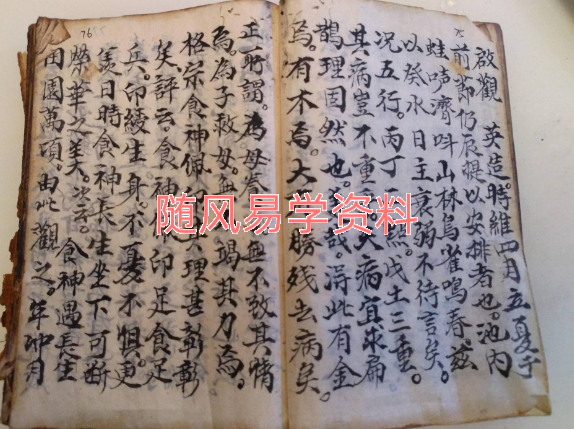 75
啟觀 英造。時維四月立夏于
前節仍提以安排者也。池內
蛙濟山林鳥雀鳴春茲
以癸水日主衰弱不待言矣。
况五行。丙丁照。戊土三重。
其病豈不重大病宜求扁
鵲理固然也。哉。淂此有金
焉。有木焉。大勝殘去病矣。
76
正所謂。為母無不放其情
焉。為子救母。無竭其力焉。
格宗食神佩理甚彰彰
矣。評云。食神印足食足
兵。印綬生身。不憂不惧。更
羡日時食神長生坐下可斷
榮華之美。食神遇長生
田園萬頃。由此觀之。年卯月
随风易学资料